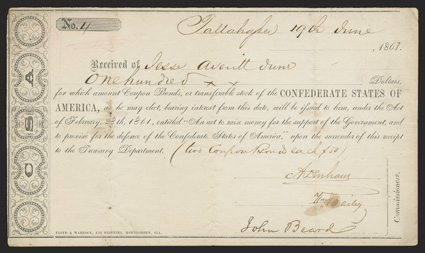 No. 4
Tallahassee 19th June
1861.
Received of Jesse Averitt June
One hundred Dollars,
for which amount Coupon Bonds, or transferable stock of the CONFEDERATE STATES OF
AMERICA, as he may elect, bearing interest from this date, will be issued to him, under the Act
of February, 28th, 1861, entitled "An act to raise money for the support of the Government, and
to provide for the defence of the Confederate States of America," upon the surrender of this receipt
to the Treasury Department. (two Coupon Bonds each $50)
Wm Bailey
John Beard
Commissioners.
C S A
& WARROCK, JOB PRINTERS, MONTGOMERY, ALA.